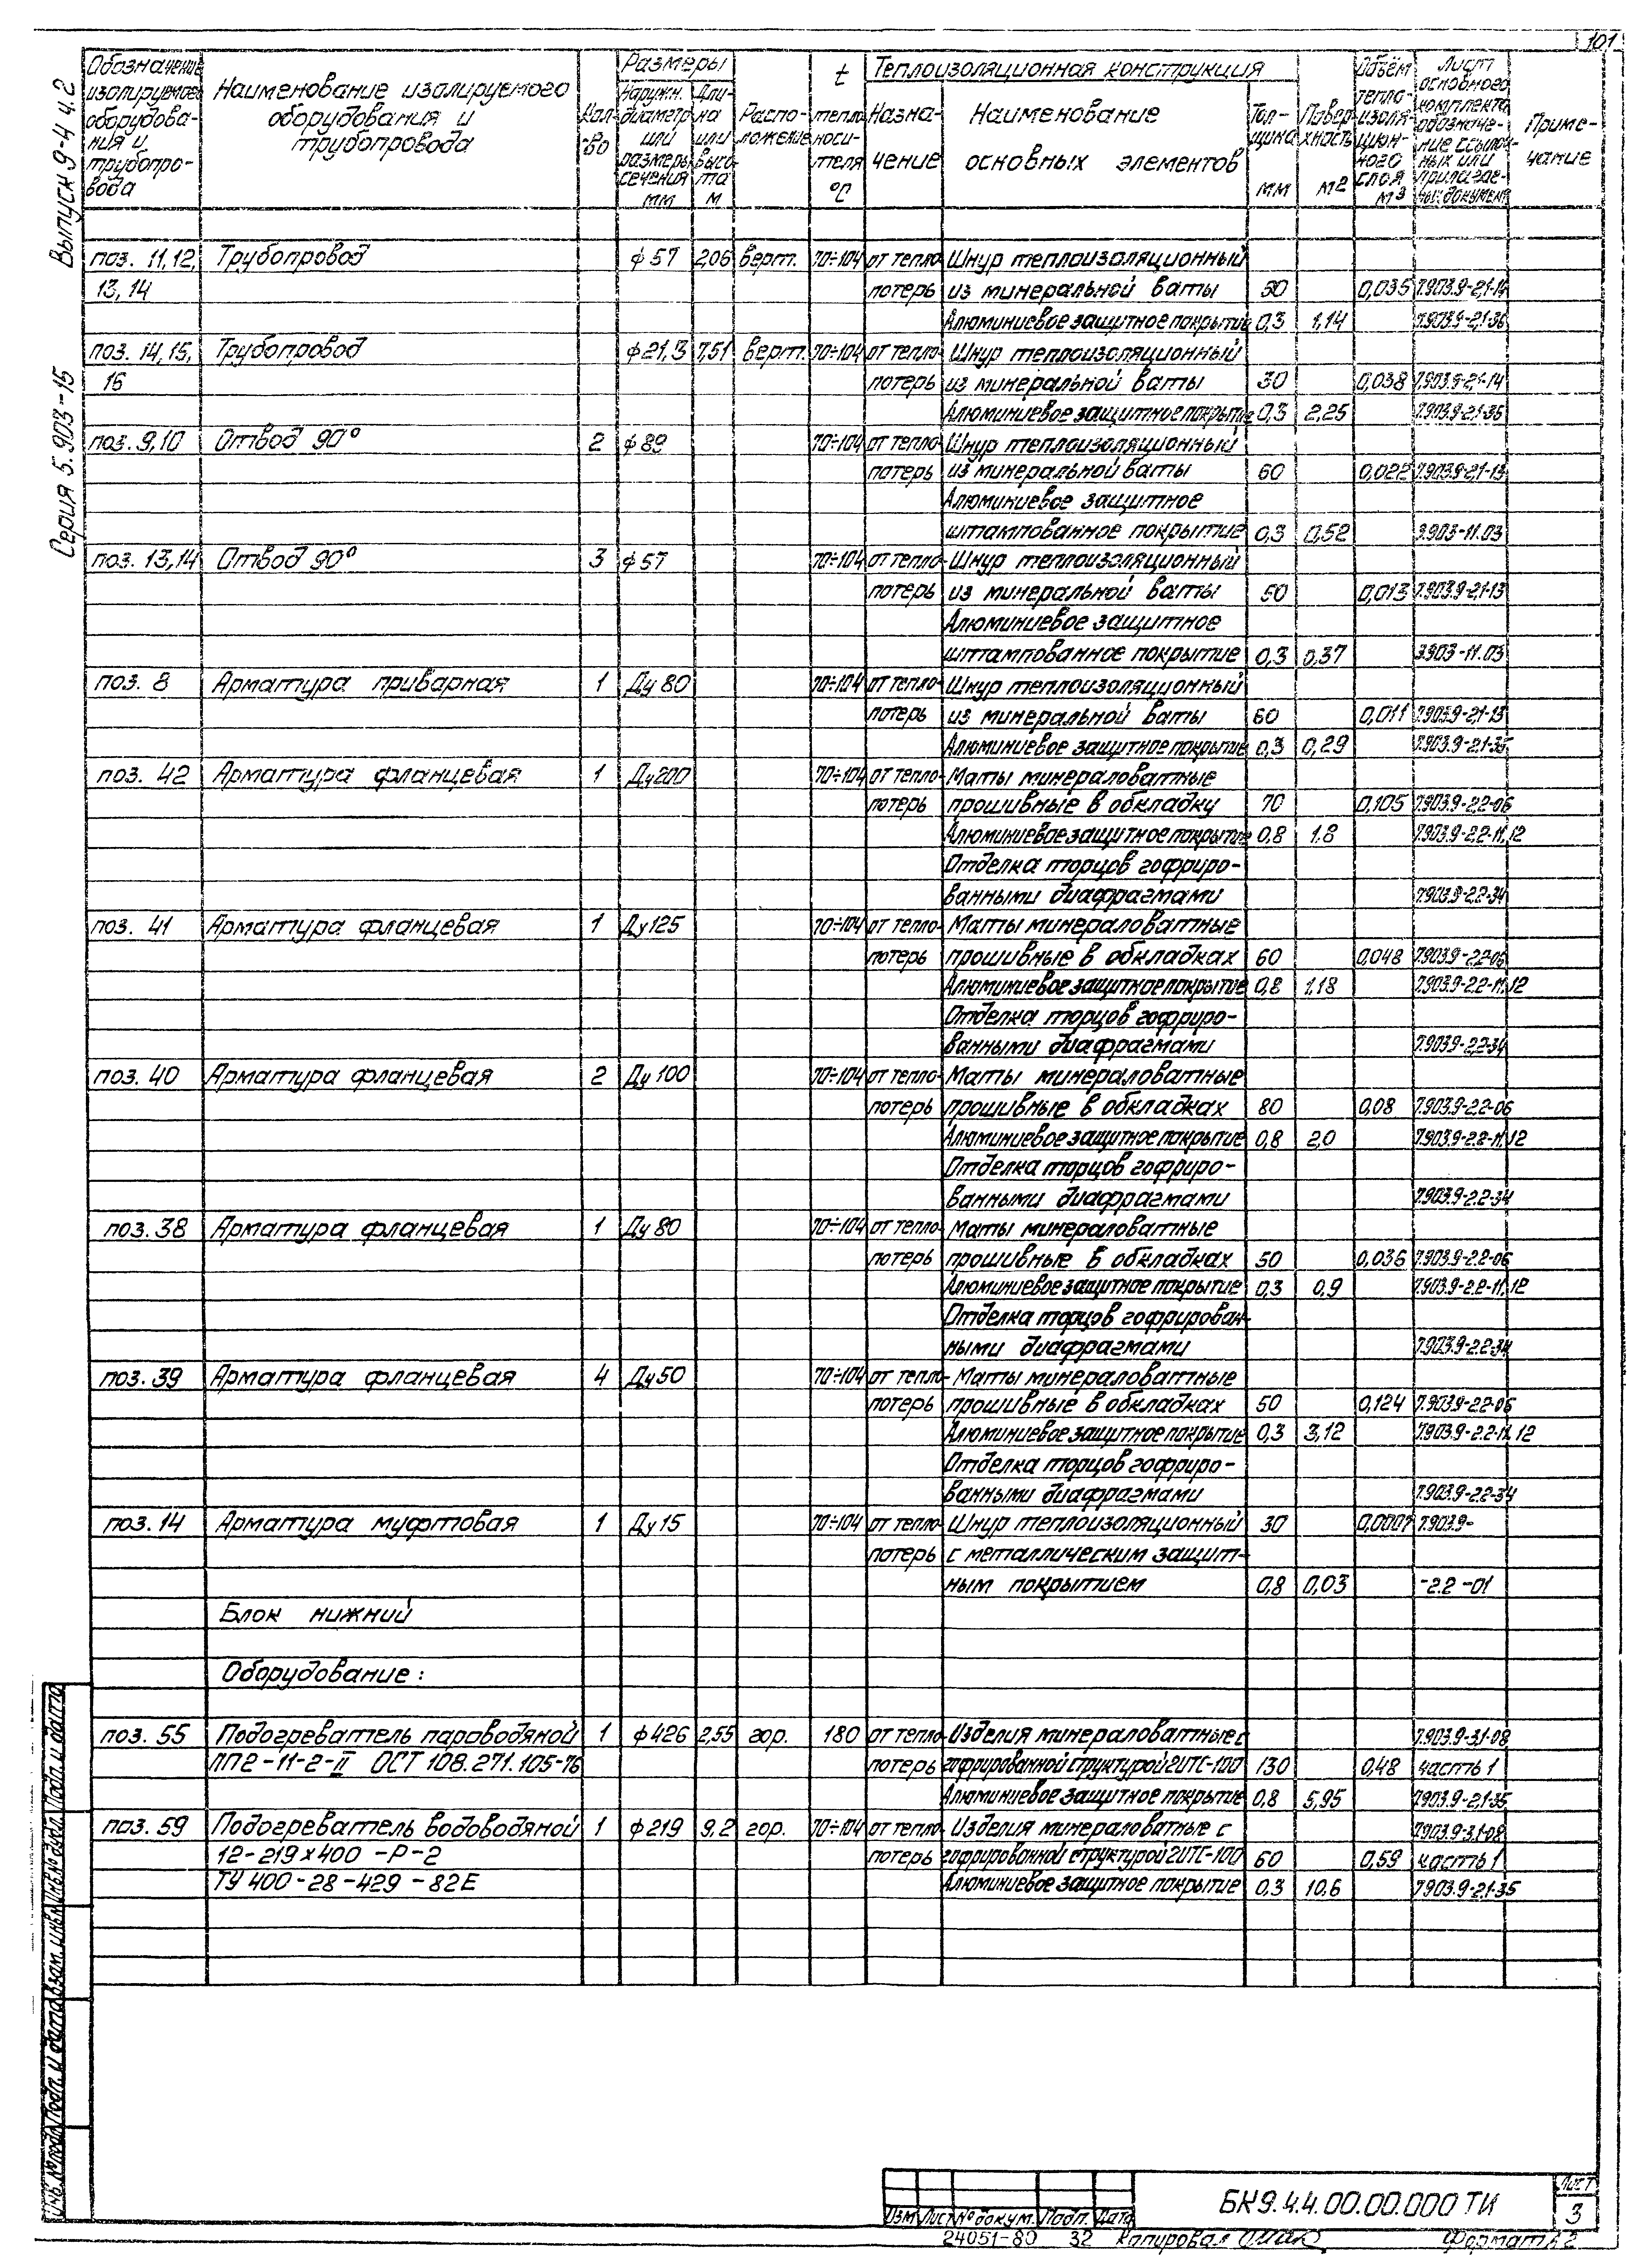 101
Серия 5.903-15 Выпуск 9-4 ч.2
Обозначение изолируемого оборудования и трубопровода
Наименование изолируемого оборудования и трубопровода
Кол-во
Размеры
Наружн. диаметр или размеры сечения мм
Длина или высота м
Расположение
t теплоносителя °С
Теплоизоляционная конструкция
Назначение
Наименование основных элементов
Толщина мм
Поверхность м2
Объём теплоизоляционного слоя м3
Лист основного комплекта, обозначение ссылочных или прилагаемых документ.
Примечание
поз. 11,12, Трубопровод ф57 2,06 верт. 70÷104 от тепло- Шнур теплоизоляционный
13, 14 потерь из минеральной ваты 50 0,035 7.903.9-2.1-14
Алюминиевое защитное покрытие 0,3 1,14 7.903.9-2.1-36
поз. 14,15, Трубопровод ф21,3 7,51 верт. 70÷104 от тепло- Шнур теплоизоляционный
16 потерь из минеральной ваты 30 0,038 7.903.9-2.1-14
Алюминиевое защитное покрытие 0,3 2,25 7.903.9-2.1-36
поз. 9,10 Отвод 90° 2 ф89 70÷104 от тепло- Шнур теплоизоляционный
потерь из минеральной ваты 60 0,022 7.903.9-2.1-13
Алюминиевое защитное
штампованное покрытие 0,3 0,52 3.903-11.03
поз. 13,14 Отвод 90° 3 ф57 70÷104 от тепло- Шнур теплоизоляционный
потерь из минеральной ваты 50 0,013 7.903.9-2.1-13
Алюминиевое защитное
штампованное покрытие 0,3 0,37 3.903-11.03
поз. 8 Арматура приварная 1 Ду 80 70÷104 от тепло- Шнур теплоизоляционный
потерь из минеральной ваты 60 0,011 7.903.9-2.1-13
Алюминиевое защитное покрытие 0,3 0,29 7.903.9-2.1-35
поз. 42 Арматура фланцевая 1 Ду200 70÷104 от тепло- Маты минераловатные
потерь прошивные в обкладку 70 0,105 7.903.9-2.2-06
Алюминиевое защитное покрытие 0,8 1.8 7.903.9-2.2-11,12
Отделка торцов гофриро-
ванными диафрагмами 7.903.9-2.2-34
поз. 41 Арматура фланцевая 1 Ду125 70÷104 от тепло- Маты минераловатные
потерь прошивные в обкладках 60 0,048 7.903.9-2.2-06
Алюминиевое защитное покрытие 0,8 1,18 7.903.9-2.2-11,12
Отделка торцов гофриро-
ванными диафрагмами 7.903.9-2.2-34
поз. 40 Арматура фланцевая 2 Ду 100 70÷104 от тепло- Маты минераловатные
потерь прошивные в обкладках 80 0,08 7.903.9-2.2-06
Алюминиевое защитное покрытие 0,8 2,0 7.903.9-2.2-11,12
Отделка торцов гофриро-
ванными диафрагмами 7.903.9-2.2-34
поз. 38 Арматура фланцевая 1 Ду 80 70÷104 от тепло- Маты минераловатные
потерь прошивные в обкладках 50 0,036 7.903.9-2.2-06
Алюминиевое защитное покрытие 0,3 0,9 7.903.9-2.2-11,12
Отделка торцов гофрирован-
ными диафрагмами 7.903.9-2.2-34
поз. 39 Арматура фланцевая 4 Ду50 70÷104 от тепло- Маты минераловатные
потерь прошивные в обкладках 50 0,124 7.903.9-2.2-06
Алюминиевое защитное покрытие 0,3 3,12 7.903.9-2.2-11,12
Отделка торцов гофриро-
ванными диафрагмами 7.903.9-2.2-34
поз. 14 Арматура муфтовая 1 Ду 15 70÷104 от тепло- Шнур теплоизоляционный 30 7.903.9-
потерь с металлическим защит-
ным покрытием 0,8 0,03 -2.2-01
Блок нижний
Оборудование:
поз. 55 Подогреватель пароводяной 1 ф426 2,55 гор. 180 от тепло- Изделия минераловатные с 7.903.9-3.1-08
ПП2-11-2-II ОСТ 108.271.105-76 потерь гофрированной структурой 2ИТС-100 130 0,48 часть 1
Алюминиевое защитное покрытие 0,8 5,95 7.903.9-2.1-35
поз. 59 Подогреватель водоводяной 1 ф219 9,2 гор. 70÷104 от тепло- Изделия минераловатные с 7.903.9-3.1-08
12-219х400-Р-2 потерь гофрированной структурой 2ИТС-100 60 0,59 часть 1
ТУ 400-28-429-82Е Алюминиевое защитное покрытие 0,3 10,6 7.903.9-2.1-35
Инв. № подл. Подп. и дата Взам. инв. № Инв. № дубл. Подп. и дата
Изм Лист № докум. Подп. Дата
БК9.4.4.00.00.000 ТИ
Лист
3
24051-80 32 Копировал Формат А2